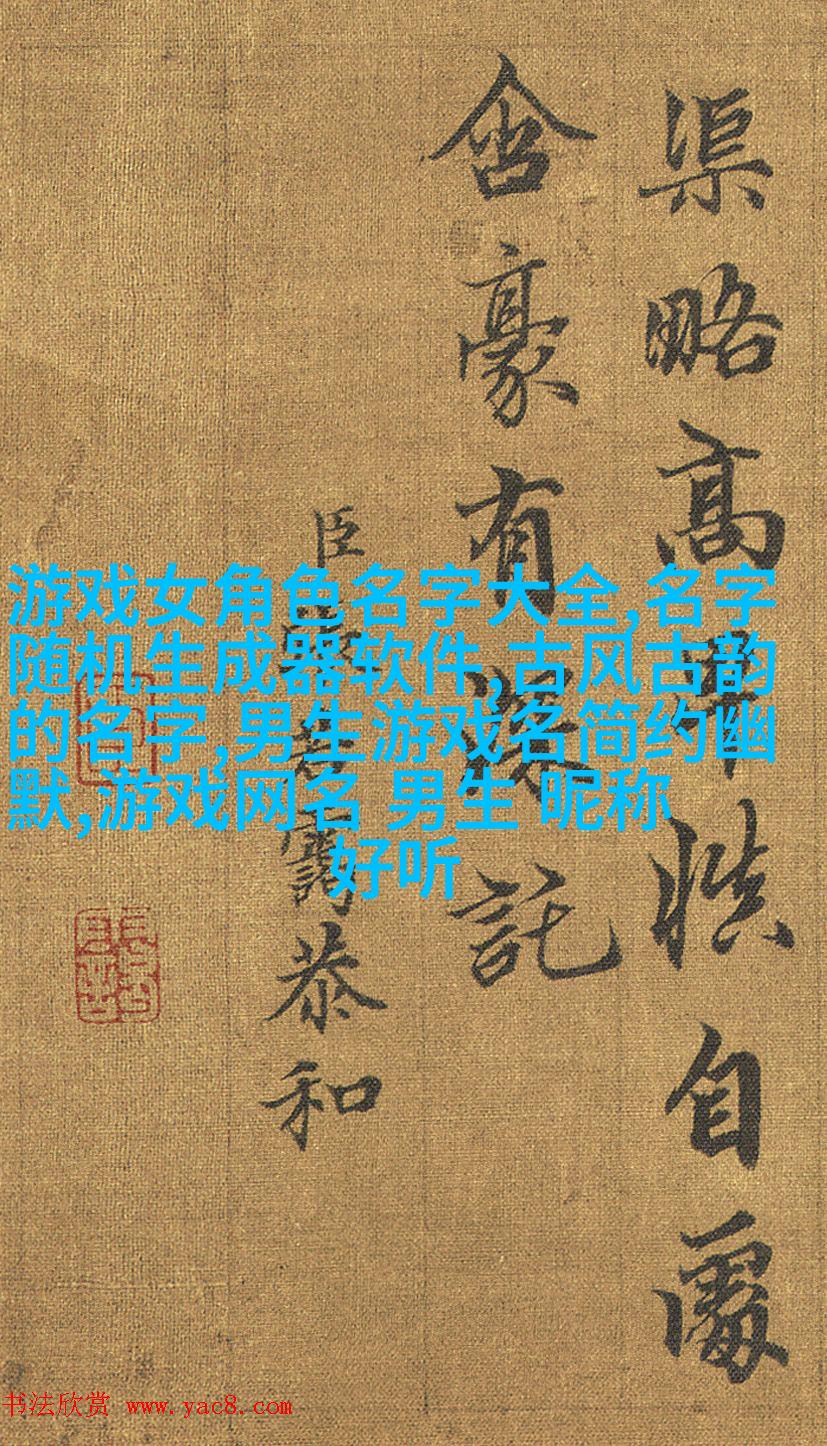 渠略高自處
含豪有託
臣恭和
游戏女角色名字大全,名字
随机生成器软件,古风古韵
的名字,男生游戏名简约幽
默,游戏网名 男生 昵称
好听
书法欣赏 www.yac8.com